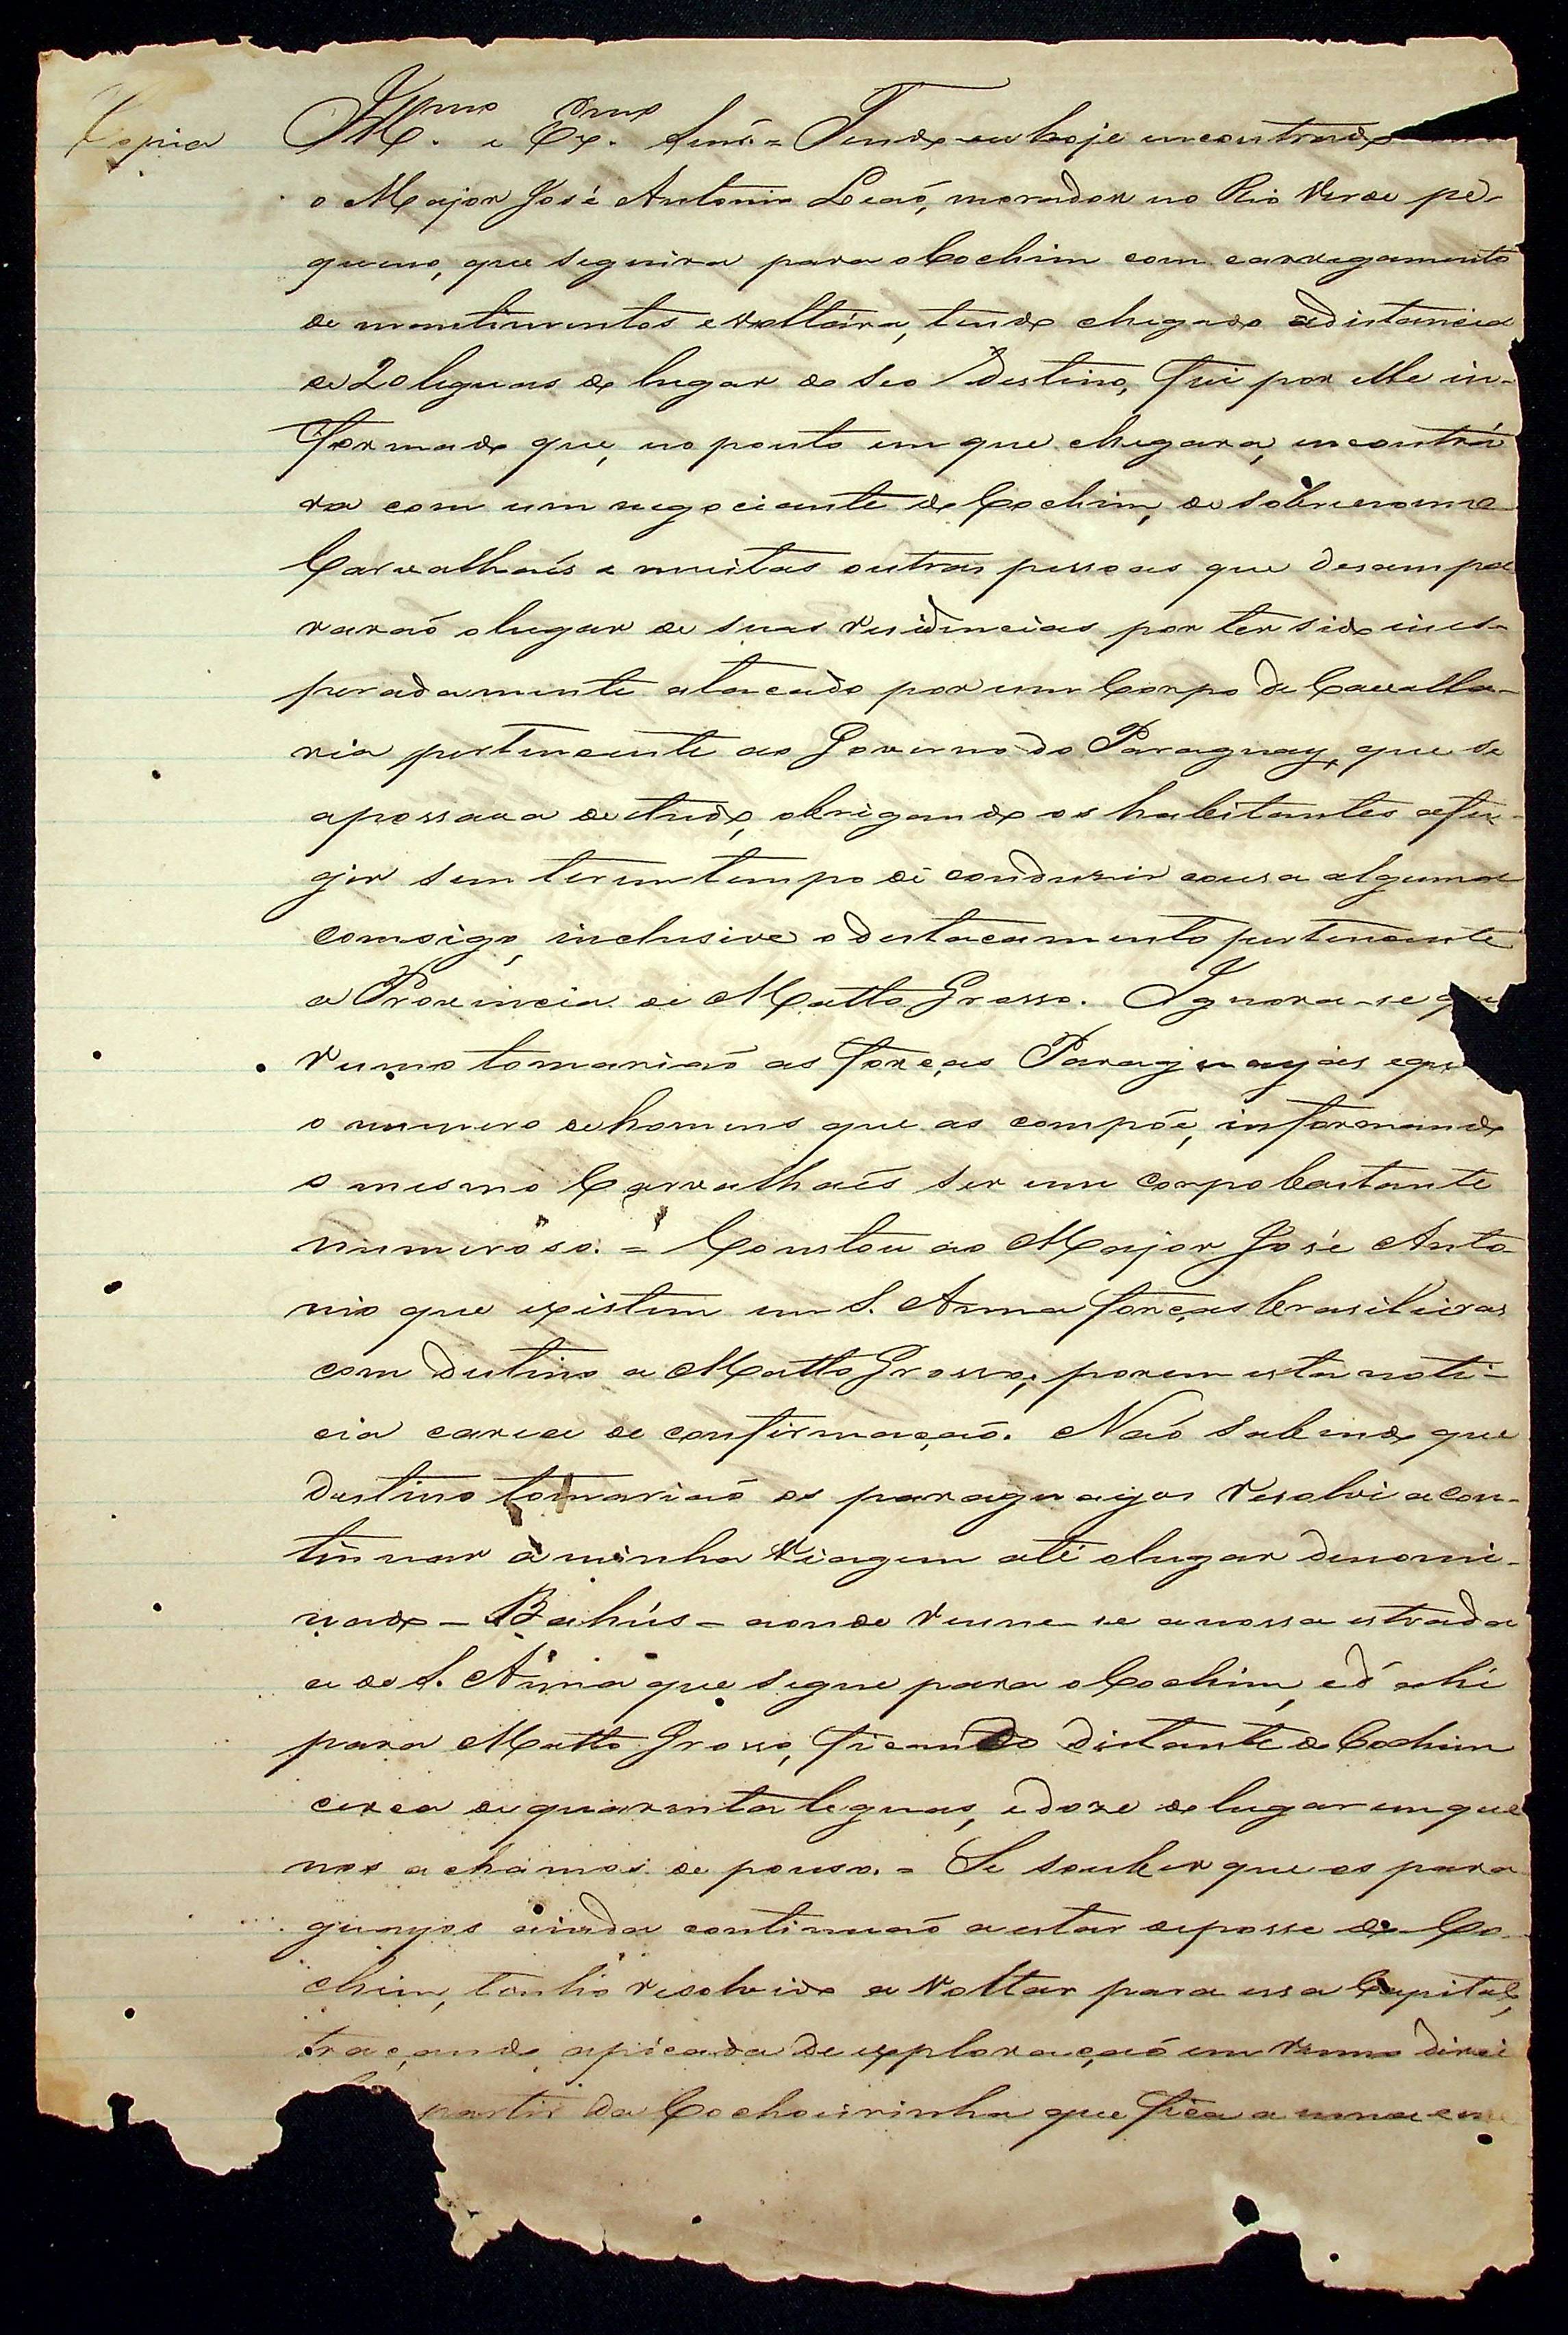 Copia
Illmo. e Exmo. Senr. = Tendo eu hoje encontrado
o Major José Antonio Leaõ, morador no Rio Verde pe-
queno, que seguira para o Cochim com carregamento
de mantimentos e voltára, tendo chegado a distancia
de 20 leguas do lugar do seo destino, fui por elle in-
formado que, no ponto em que chegara, encontrá
ra com um negociante do Cochim, de sobrenome
Carvalhaés e muitas outras pessoas que desampa
raraõ o lugar de suas residencias por ter sido ines-
peradamente atacado por um Corpo de Cavalla-
ria pertencente ao Governo do Paraguay, que se
apossara de tudo, obrigando os habitantes a fu-
gir sem terem tempo de conduzir cousa alguma
comsigo, inclusive o destacamento pertencente
a Provincia de Matto Grosso. Ignora-se que
rumo tomariaõ as forças Paraguayas e
o numero de homens que as compõe, informando
o mesmo Carvalhaés ser um corpo bastante
numeroso. = Constou ao Major José Anto
nio que existem em S. Anna forças brasileiras
com destino a Matto Grosso; porem esta noti-
cia carece de confirmaçaõ. Naõ sabendo que
destino tomariaõ os paraguayos resolvi a con-
tinuar a minha viagem até o lugar denomi-
nado - Bahús - aonde reune-se a nossa estrada
a de S. Anna que segue para o Cochim, e d'ahi
para Matto Grosso, ficando distante do Cochim
cerca de quarenta leguas, e doze do lugar em que
nos achamos de pouso. = Se souber que os para
guayos ainda continuaõ a estar de posse do Co-
chim, tenho resolvido a voltar para essa Capital,
traçando a picada de exploraçaõ em rumo direi
partir da Cachoeirinha que fica a uma